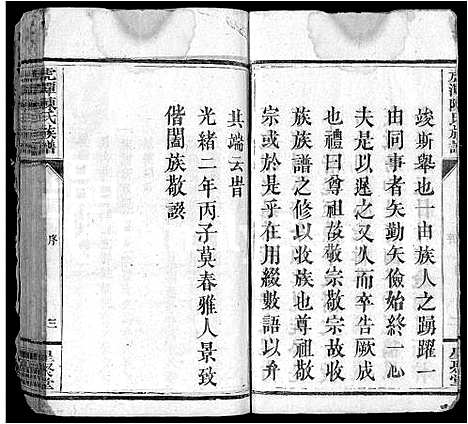 虎潭陳氏族譜
竣斯舉也一由族人之踴躍一
由同事者矢勤矢儉始終一心
夫是以遲之又久而卒告厥成
也禮曰尊祖故敬宗敬宗故收
族族譜之修以收族也尊祖敬
宗或於是乎在用綴數語以弁
其端云旹
光緒二年丙子莫春雅人景致
偕闔族敬譔
虎潭陳氏族譜
序
三
星聚堂